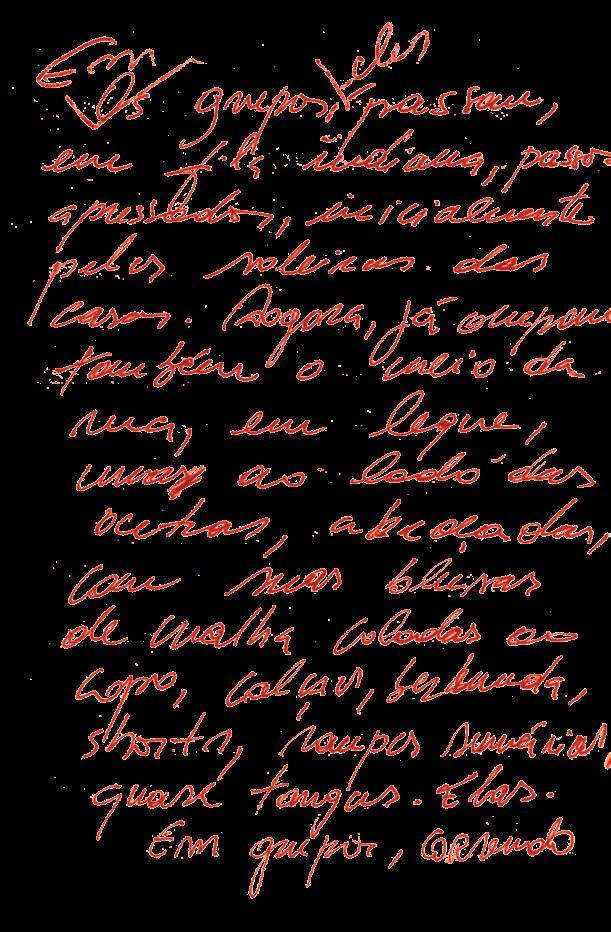 Em eles
Os grupos, passam,
em fila indiana, passos
apressados, inicialmente
pelas soleiras das
casas. Aogora, já ocupam
também o meio da
rua, em leque,
umas ao lado das
outras, abraçadas,
com suas blusas
de malha coladas ao
corpo, calças, bermuda,
shorts, roupas sumárias,
quase tangas. Elas.
Em grupos, correndo